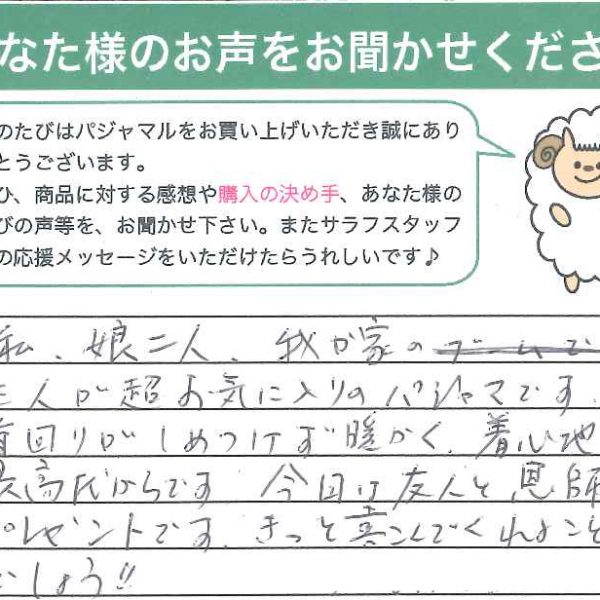 なた様のお声をお聞かせくださ
のたびはパジャマルをお買い上げいただき誠にあり
とうございます。
ひ、商品に対する感想や購入の決め手、あなた様の
びの声等を、お聞かせ下さい。またサラフスタッフ
の応援メッセージをいただけたらうれしいです♪
私、娘二人、我が家の
三人が超お気に入りのパジャマです
首回りがしめつけず暖かく、着心地
最高だからです 今回は友人と恩師
プレゼントです。きっと喜こんでくれること
でしょう!!